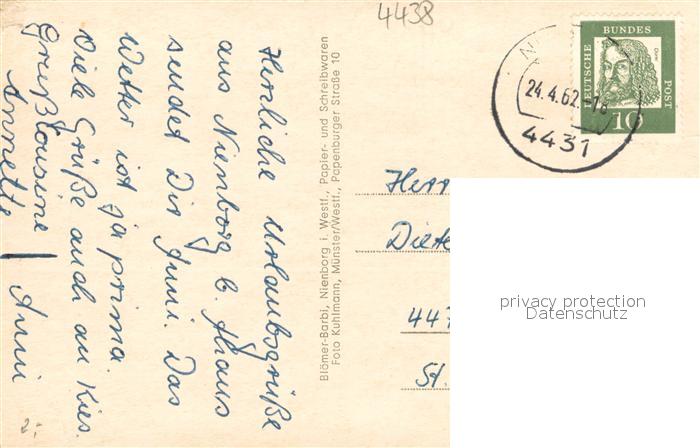 4438
Herzliche Urlaubsgrüße
aus Nienborg b. Ahaus
sendet Dir Anni. Das
Wetter ist ja prima.
Viele Grüße auch an Kies.
Grußcousine
Annette / Anni
2,-
Blömer-Barbi, Nienborg i. Westf., Papier- und Schreibwaren
Foto Kuhlmann, Münster/Westf., Papenburger Straße 10
DEUTSCHE BUNDES POST
Dürer
10
24.4.62.-18
4431
Herr
Diete
447
St.
privacy protection
Datenschutz